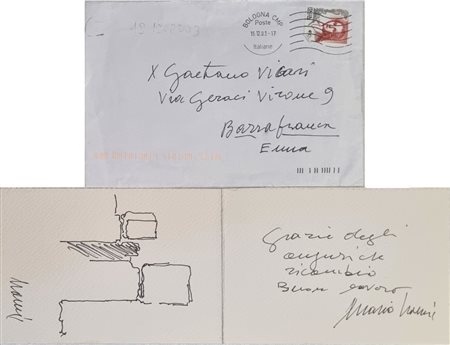 BOLOGNA CMP
Poste
Italiane
X Gaetano Vicari
Via Geraci Virone 9
Barrafranca
Enna
Grazie degli
auguri che
ricambio
Buon lavoro
Mario Nanni
Nanni